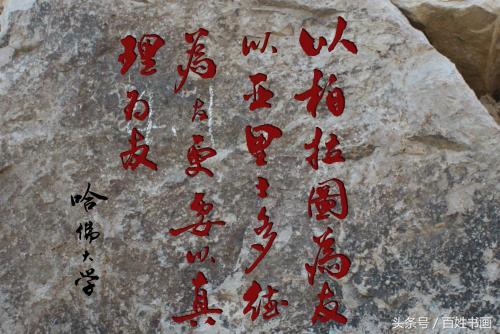 以柏拉圖為友
以亚里士多德
為友更要以真
理为友
哈佛大学
头条号 / 百姓书画